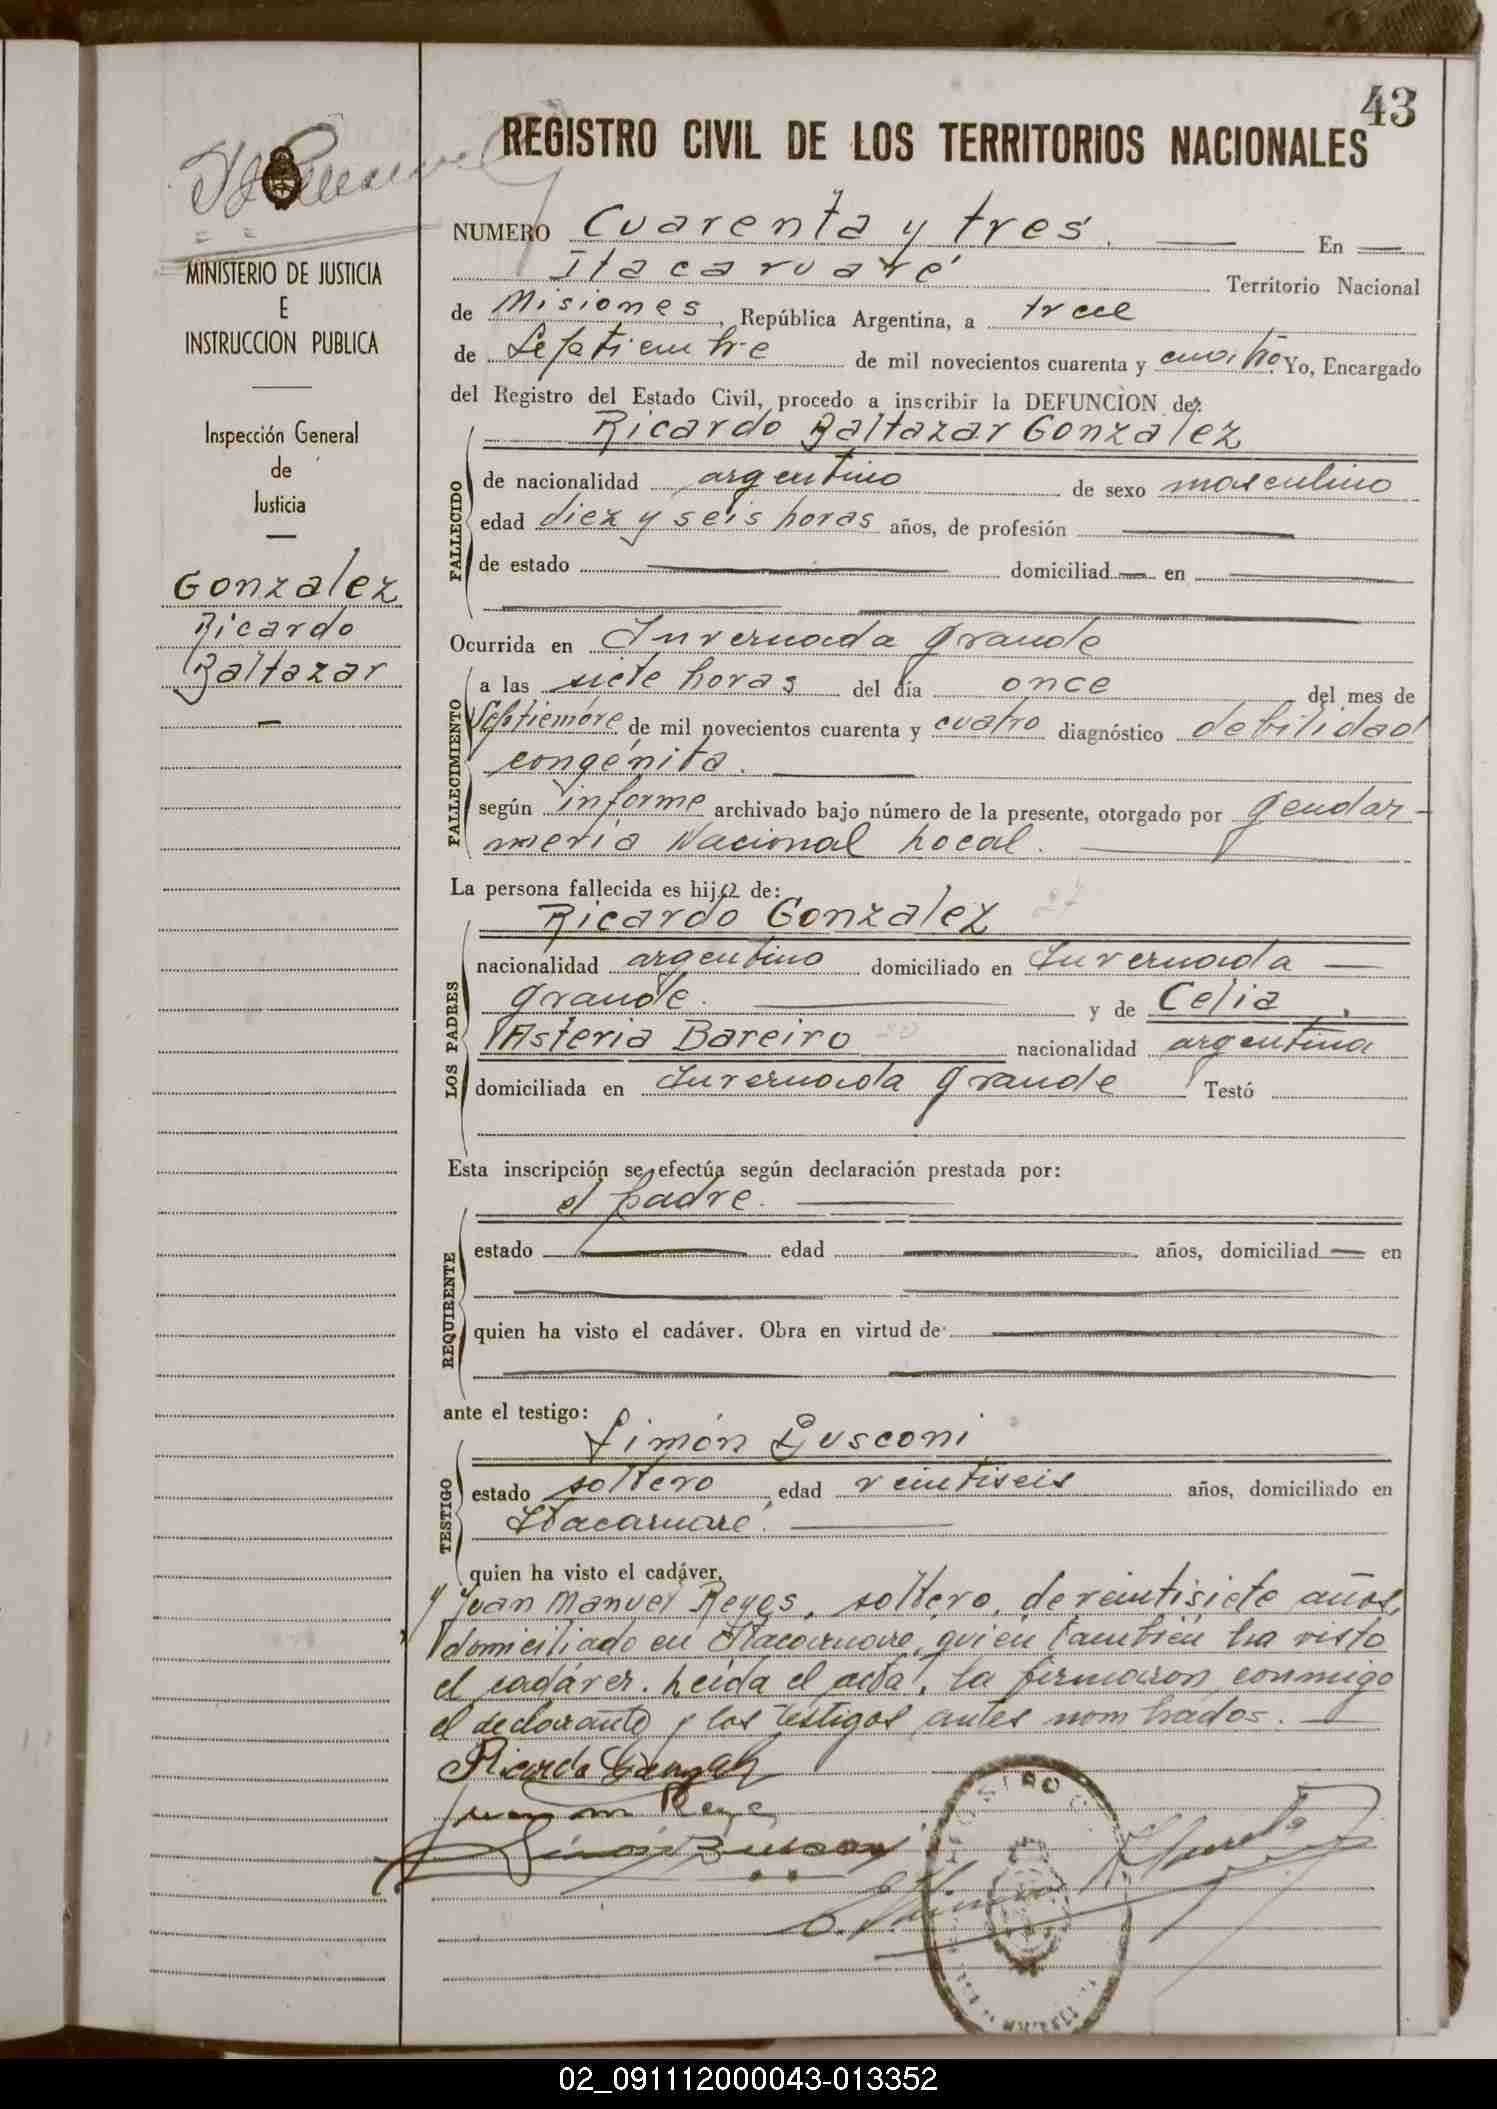 43
REGISTRO CIVIL DE LOS TERRITORIOS NACIONALES
MINISTERIO DE JUSTICIA
E
INSTRUCCION PUBLICA
Inspección General
de
Justicia
Gonzalez
Ricardo
Baltazar
NUMERO Cuarenta y tres. En
Itacaruaré Territorio Nacional
de Misiones, República Argentina, a trece
de Septiembre de mil novecientos cuarenta y cuatro Yo, Encargado
del Registro del Estado Civil, procedo a inscribir la DEFUNCION de:
Ricardo Baltazar Gonzalez
FALLECIDO
de nacionalidad argentino de sexo masculino
edad diez y seis horas años, de profesión
de estado domiciliad en
Ocurrida en Invernada Grande
FALLECIMIENTO
a las siete horas del día once del mes de
Septiembre de mil novecientos cuarenta y cuatro diagnóstico debilidad
congénita.
según informe archivado bajo número de la presente, otorgado por gendar-
mería Nacional local.
La persona fallecida es hijo de:
Ricardo Gonzalez 27
LOS PADRES
nacionalidad argentino domiciliado en Invernada
Grande. y de Celia
Asteria Bareiro nacionalidad argentina
domiciliada en Invernada Grande Testó
Esta inscripción se efectúa según declaración prestada por:
el padre.
REQUIRENTE
estado edad años, domiciliad en
quien ha visto el cadáver. Obra en virtud de
ante el testigo:
Simón Busconi
TESTIGO
estado soltero edad veintiseis años, domiciliado en
Itacaruaré.
quien ha visto el cadáver,
y Juan Manuel Reyes, soltero, de veintisiete años,
domiciliado en Itacaruare, quien también ha visto
el cadáver. Leída el acta, la firmaron conmigo
el declarante y los testigos antes nombrados.
Ricardo Gonzalez
Juan M Reyes
02_091112000043-013352